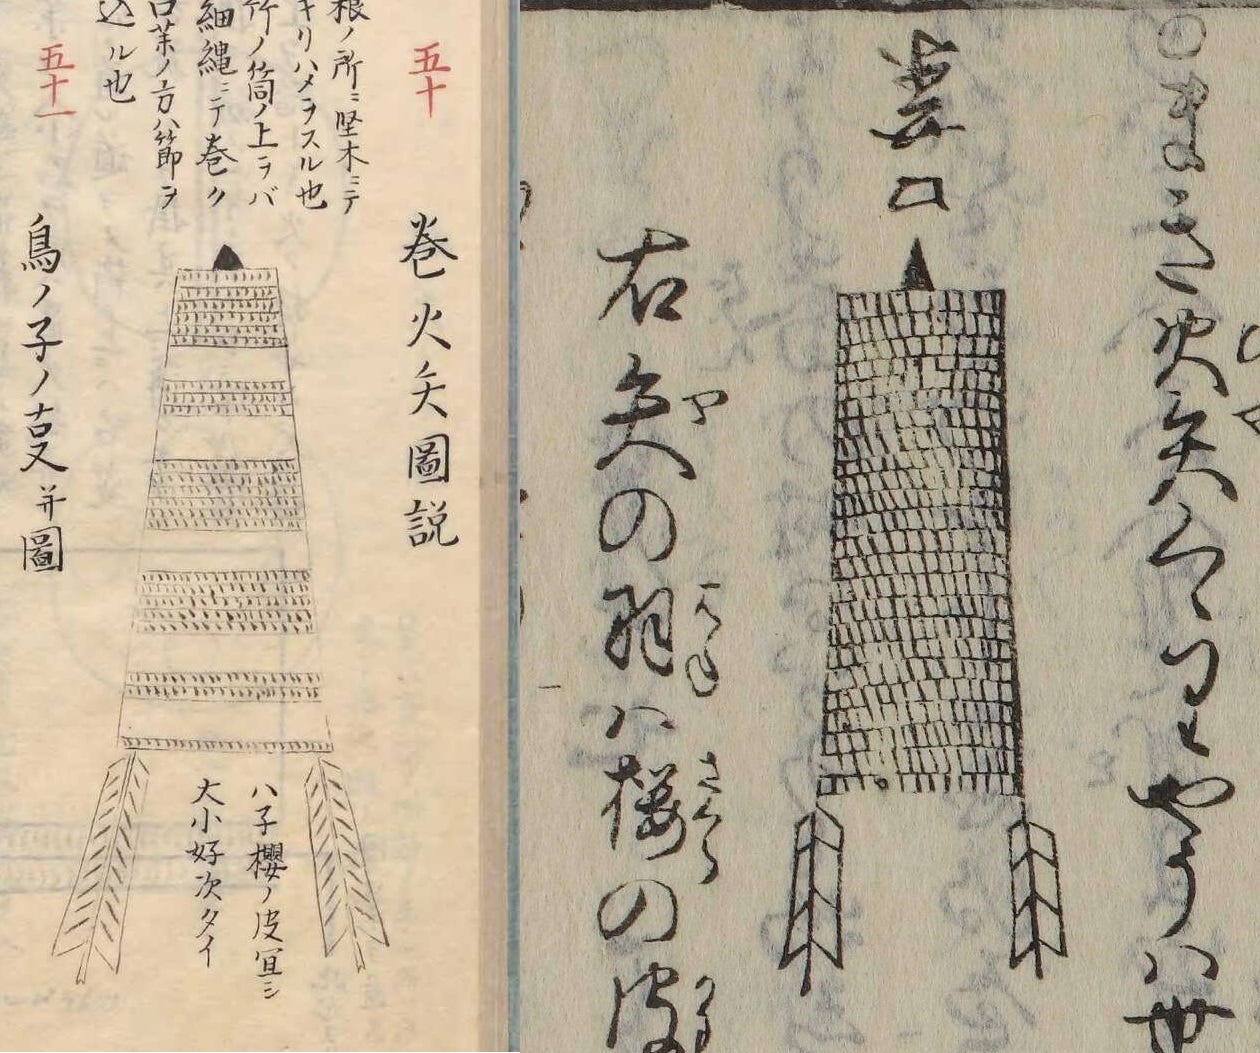 五十
巻火矢圖説
根ノ所ニ堅木ニテ
キリハメヲスル也
竹ノ筒ノ上ヲバ
細縄ニテ巻ク
口薬ノ方ハ節ヲ
込ル也
ハ子櫻ノ皮宜シ
大小好次タイ
五十一
鳥ノ子ノ叓并圖
まき火矢
やうハ
右矢の羽ハ桜の皮
ヤ
はね
さくら